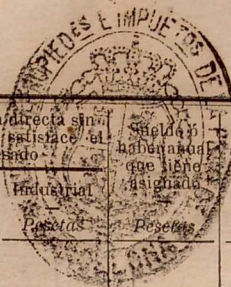 PROPIEDES E IMPUETOS DE
directa sin
satisface el
sado
Industrial
Pesetas
Sueldo ó
haber anual
que tiene
asignado
Pesetas